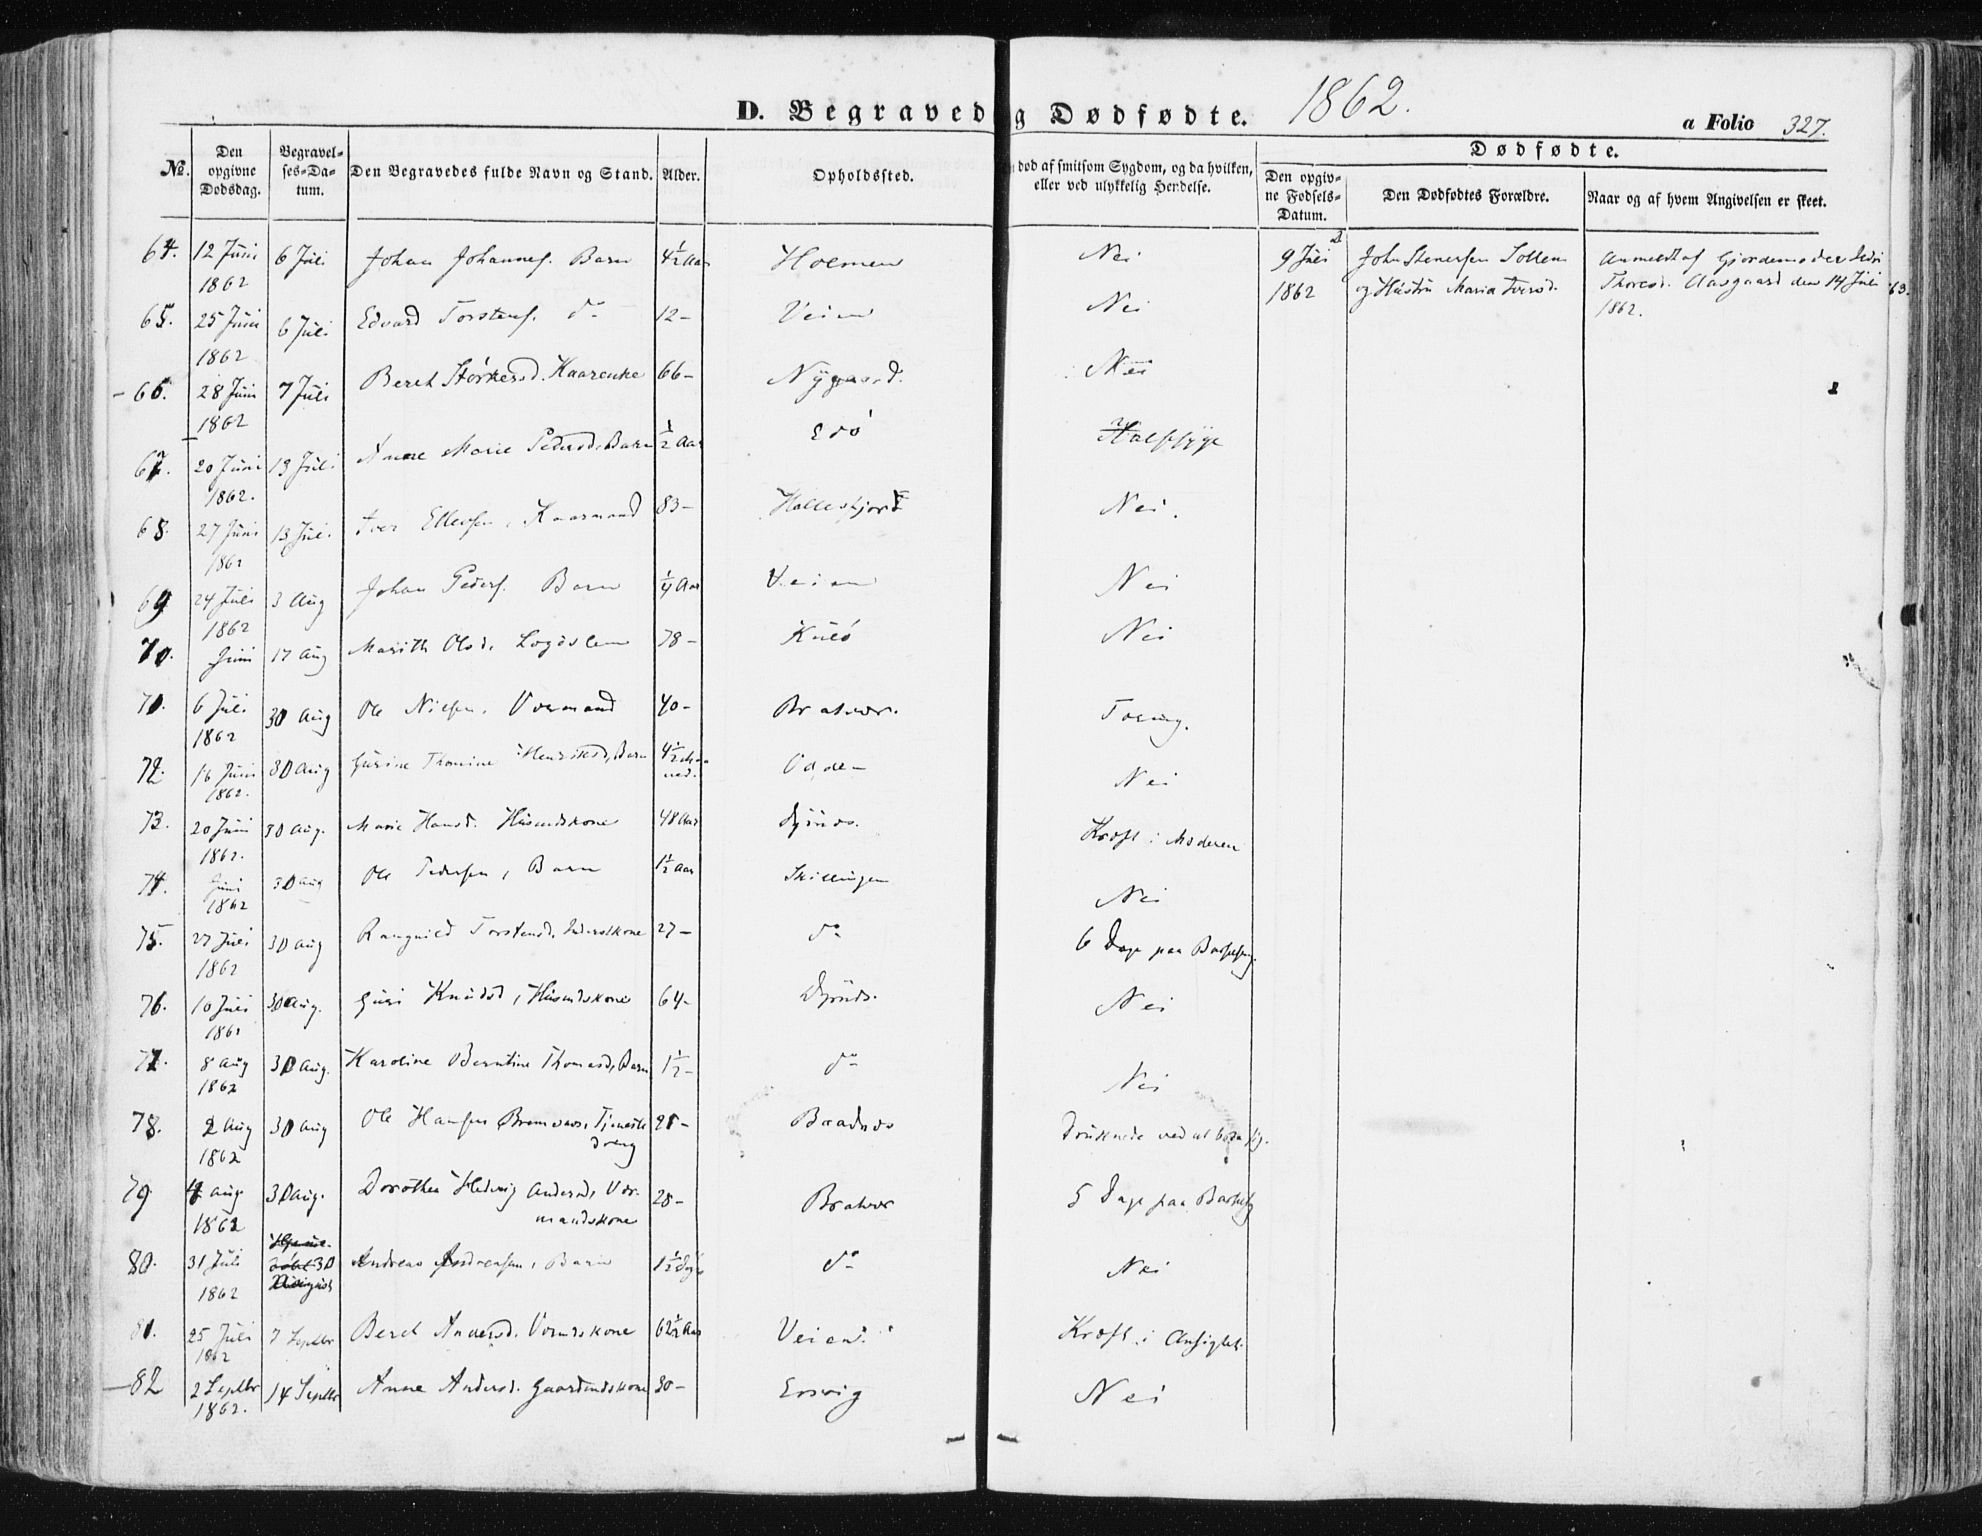 D. Begraved
g Dødfødte. 1862.
a Folio 327.
No.
Den opgivne Dødsdag.
Begravelses=Datum.
Den Begravedes fulde Navn og Stand.
Alder.
Opholdssted.
død af smitsom Sygdom, og da hvilken,
eller ved ulykkelig Hendelse.
Dødfødte.
Den opgivne Fødsels=Datum.
Den Dødfødtes Forældre.
Naar og af hvem Angivelsen er skeet.
64. 12 Juni 1862 6 Juli Johan Johannes. Barn 4½ Aar Holmen Nei
9 Juli 1862 John Stenersen og Hustru Maria Anmeldt af Gjordemoder Thoresd. Aasgaard den 14 Juli 1862.
65. 25 Juni 1862 6 Juli Edvard Torstens. do 12 - Veien Nei
66. 28 Juni 1862 7 Juli Beret Størkersd. Kaarenke 66 - Nygaard. Nei
67. 20 Juni 1862. 13 Juli Anne Marie Pedersd. Barn ½ Aar Edø Halssyge
68. 27 Juni 1862 13 Juli Iver Ellefsen, Kaarmand 83 - Nei.
69 24 Juli 1862 3 Aug Johan Peders. Barn ¼ Aar Veien Nei
70. Juni 17 Aug Marith Olsd. Logdslem 78 - Kulø Nei
71. 6 Juli 1862 30 Aug Ole Nilsen. Vormand 40 - Bratvær. Tæring.
72. 16 Juni 1862. 30 Aug Gurine Thomine Henriksd. Barn 4½ Maaned. Odden Nei
73. 20 Juni 1862. 30 Aug. Marie Hansd. Husmdskone 48 Aar Kræft i Moderen
74. Juni 1862 30 Aug Ole Pedersen, Barn 1½ Aar Skillingen Nei
75. 27 Juli 1862 30 Aug Rangnild Torstensd. 27 - do 6 Dage paa Barselseng.
76. 10 Juli 1862 30 Aug. Guri Knudsd, Husmdskone 64 - Nei
77. 8 Aug 1862 30 Aug. Karoline Berntine Thomasd, Barn 1½ - do Nei
78. 2 Aug 1862 30 Aug Ole Hansen Bremsnes, Tjenestedreng Druknede ved at bade sig.
79. 4 Aug 1862 30 Aug. Dorothea Hedevig Andersd. Vormandskone 28 - Bratvær 5 Dage paa Barselsg
80. 31 Juli 1862 30 Andreas Andreasen, Barn 1½ Nei
81. 25 Juli 1862 7 Septbr Beret Andersd. Vormdskone 62½ Aar Veien. Kræft i Ansigtet.
82 2 Septbr 1862. 14 Septbr Anne Andersd. Gaardmdskone 30 - Ersvig Nei